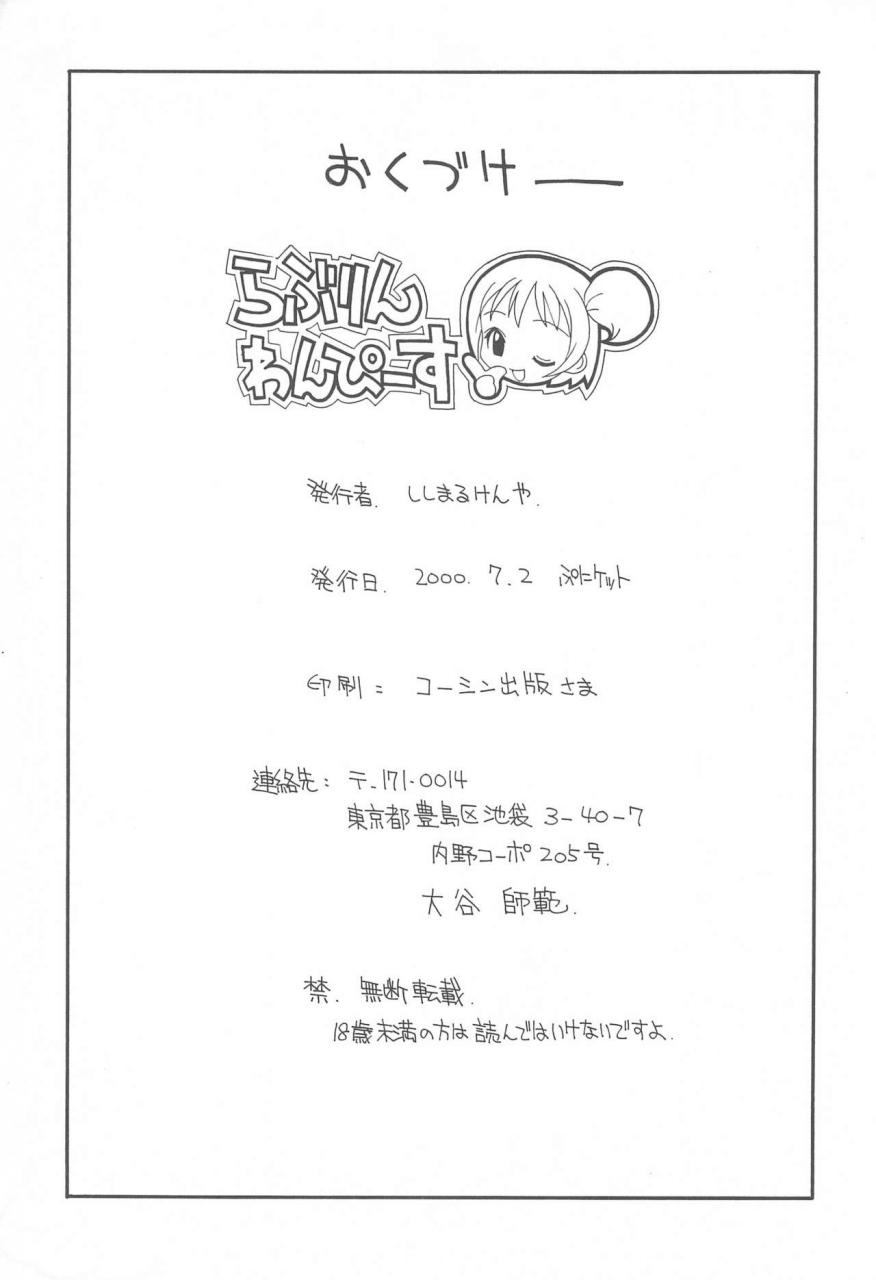 おくづけ――
らぶりん
わんぴーす
発行者. ししまるけんや.
発行日. 2000. 7. 2 ぷにケット
印刷: コーミン出版さま
連絡先: 〒.171-0014
東京都豊島区池袋 3-40-7
内野コーポ 205号.
大谷 師範.
禁. 無断転載.
18歳未満の方は読んではいけないですよ.